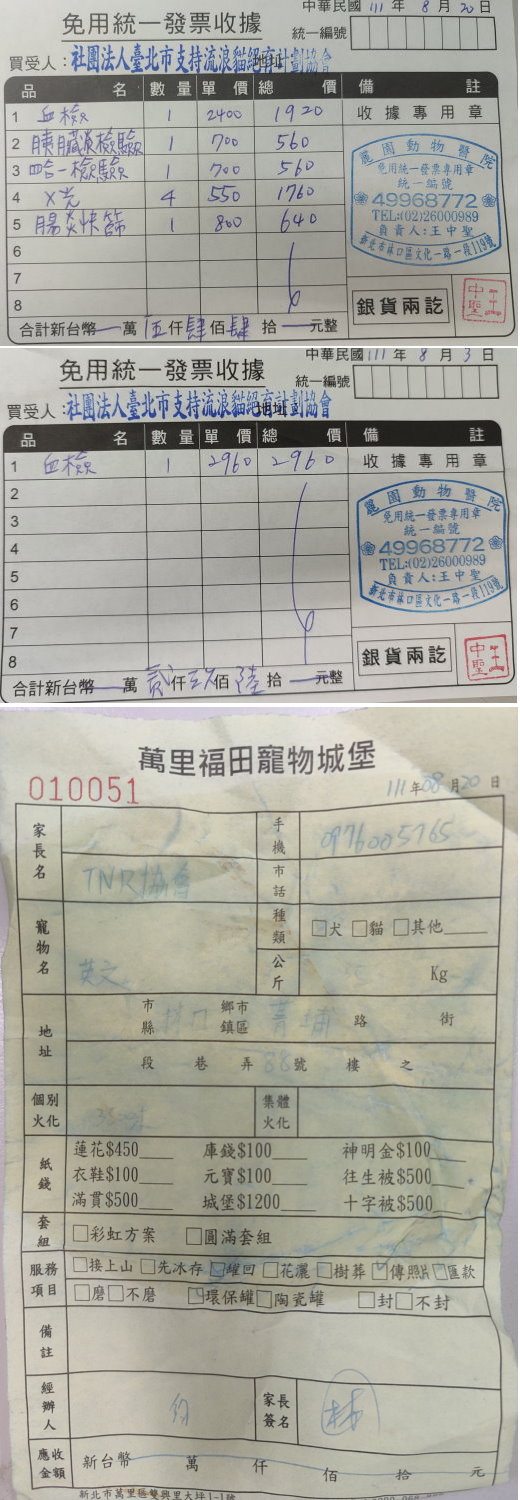 中華民國 111 年 8 月 20 日
免用統一發票收據
統一編號
買受人：社團法人臺北市支持流浪貓絕育計劃協會
地址
品 名 數量 單價 總價 備 註
1 血檢 1 2400 1920
收據專用章
2 胰臟炎檢驗 1 700 560
3 四合一檢驗 1 700 560
4 X光 4 550 1760
5 腸炎快篩 1 800 640
6
7
8
麗園動物醫院
免用統一發票專用章
統一編號
49968772
TEL:(02)26000989
負責人:王中聖
新北市林口區文化一路一段119號
銀貨兩訖
王中聖
合計新台幣 萬 伍仟肆佰肆拾 元整
中華民國 111 年 8 月 3 日
免用統一發票收據
統一編號
買受人：社團法人臺北市支持流浪貓絕育計劃協會
地址
品 名 數量 單價 總價 備 註
1 血檢 1 2960 2960
收據專用章
2
3
4
5
6
7
8
麗園動物醫院
免用統一發票專用章
統一編號
49968772
TEL:(02)26000989
負責人:王中聖
新北市林口區文化一路一段119號
銀貨兩訖
王中聖
合計新台幣 萬 貳仟玖佰陸拾 元整
萬里福田寵物城堡
010051
111年08月20日
家長名 TNR協會
手機 0976005765
市話
寵物名 英文
種類 □犬 □貓 □其他
公斤 Kg
地址 市縣 林口 鄉市鎮區 菁埔 路 街
段 巷 弄 88號 樓 之
個別火化
集體火化
紙錢 蓮花$450 庫錢$100 神明金$100
衣鞋$100 元寶$100 往生被$500
滿貫$500 城堡$1200 十字被$500
套組 □彩虹方案 □圓滿套組
服務項目 □接上山 □先冰存 □罐回 □花灑 □樹葬 □傳照片 □匯款
□磨□不磨 □環保罐□陶瓷罐 □封□不封
備註
經辦人
家長簽名 林
應收金額 新台幣 萬 仟 佰 拾 元
新北市萬里區雙興里大坪1-1號